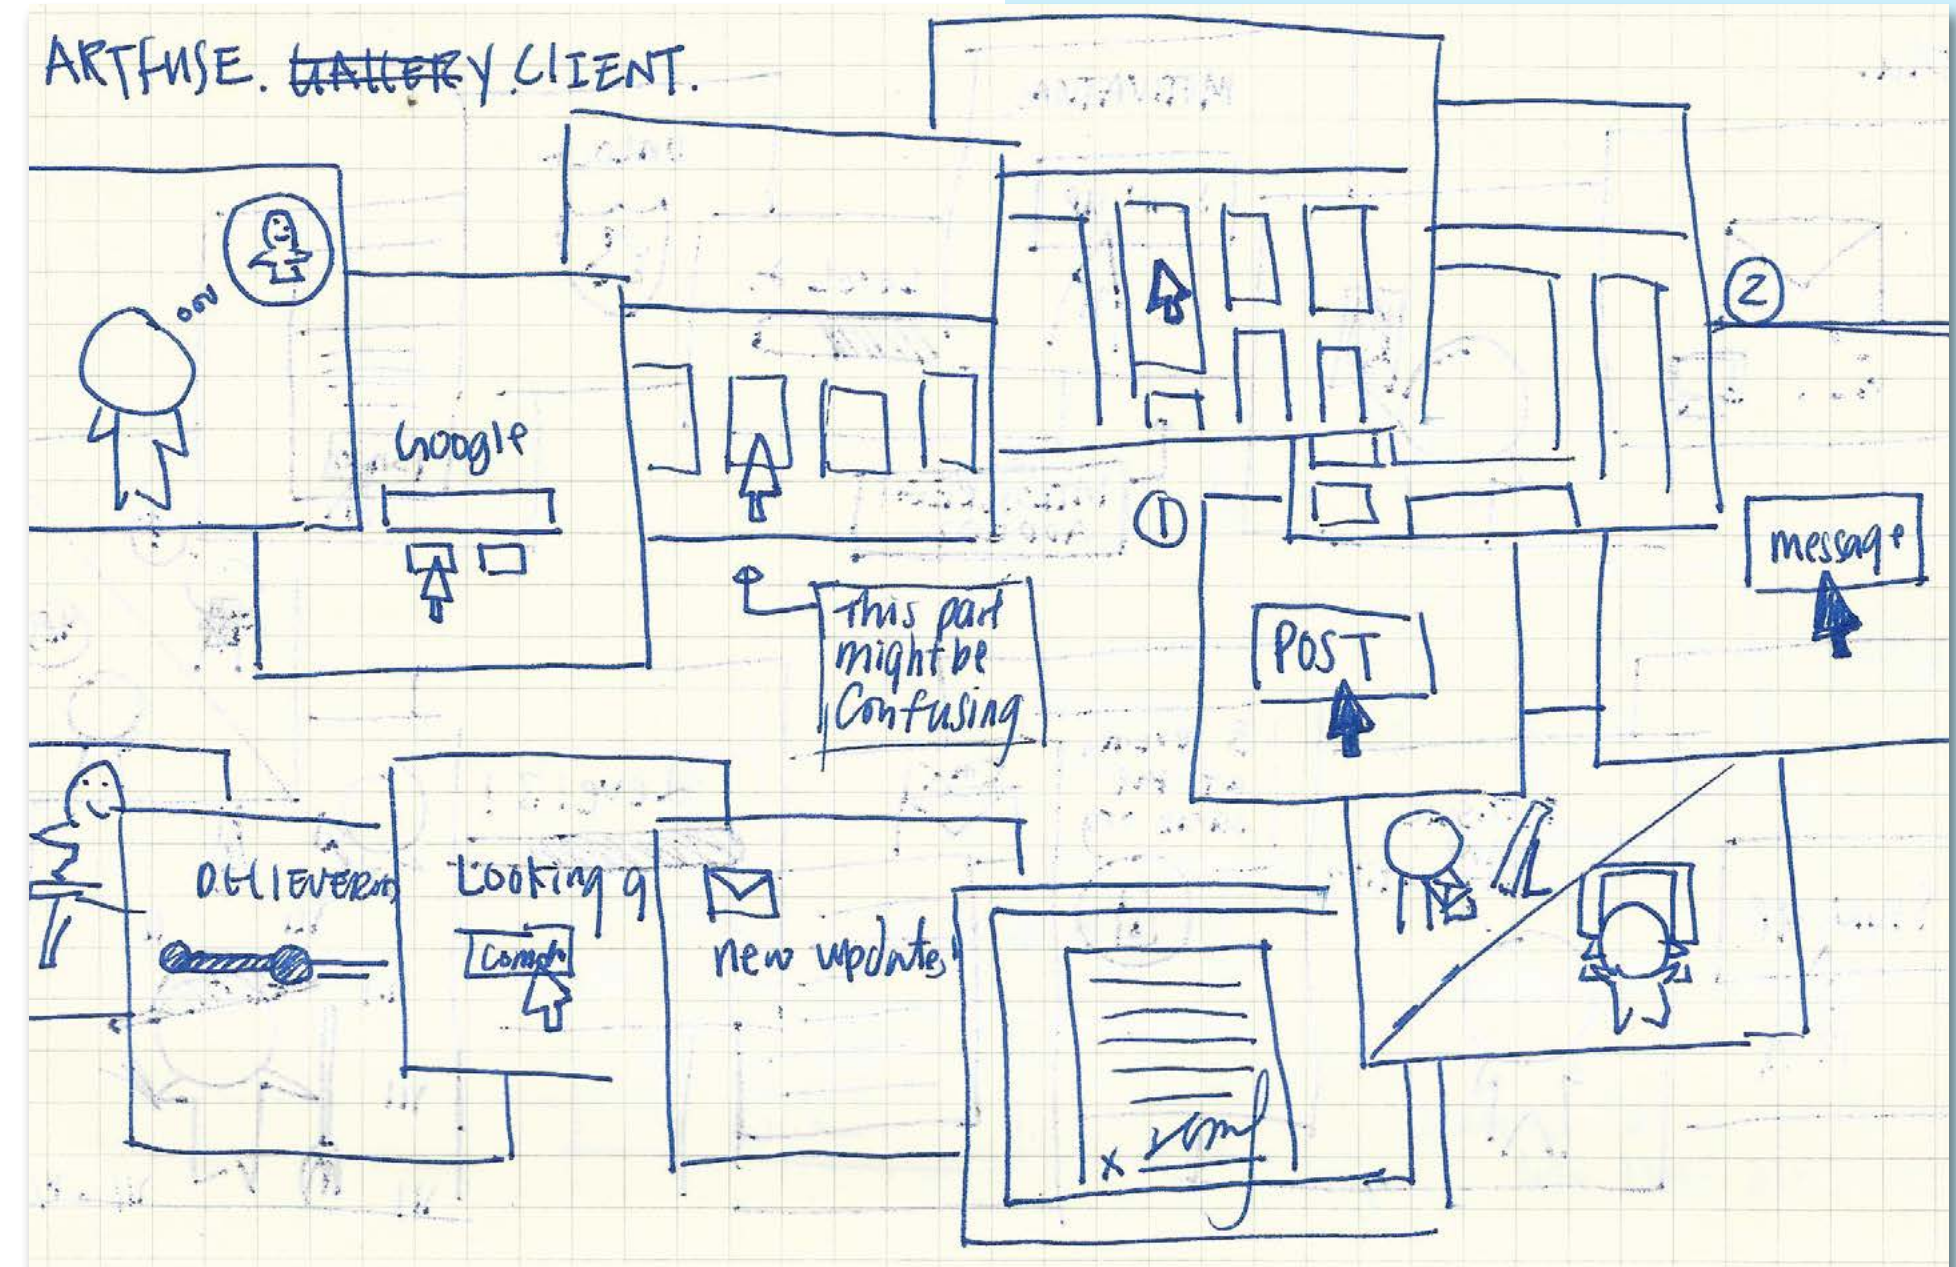 ARTFUSE. GALLERY CLIENT.
Google
This part
might be
Confusing
①
②
POST
message
DELIEVERING
Looking g
new updates
x